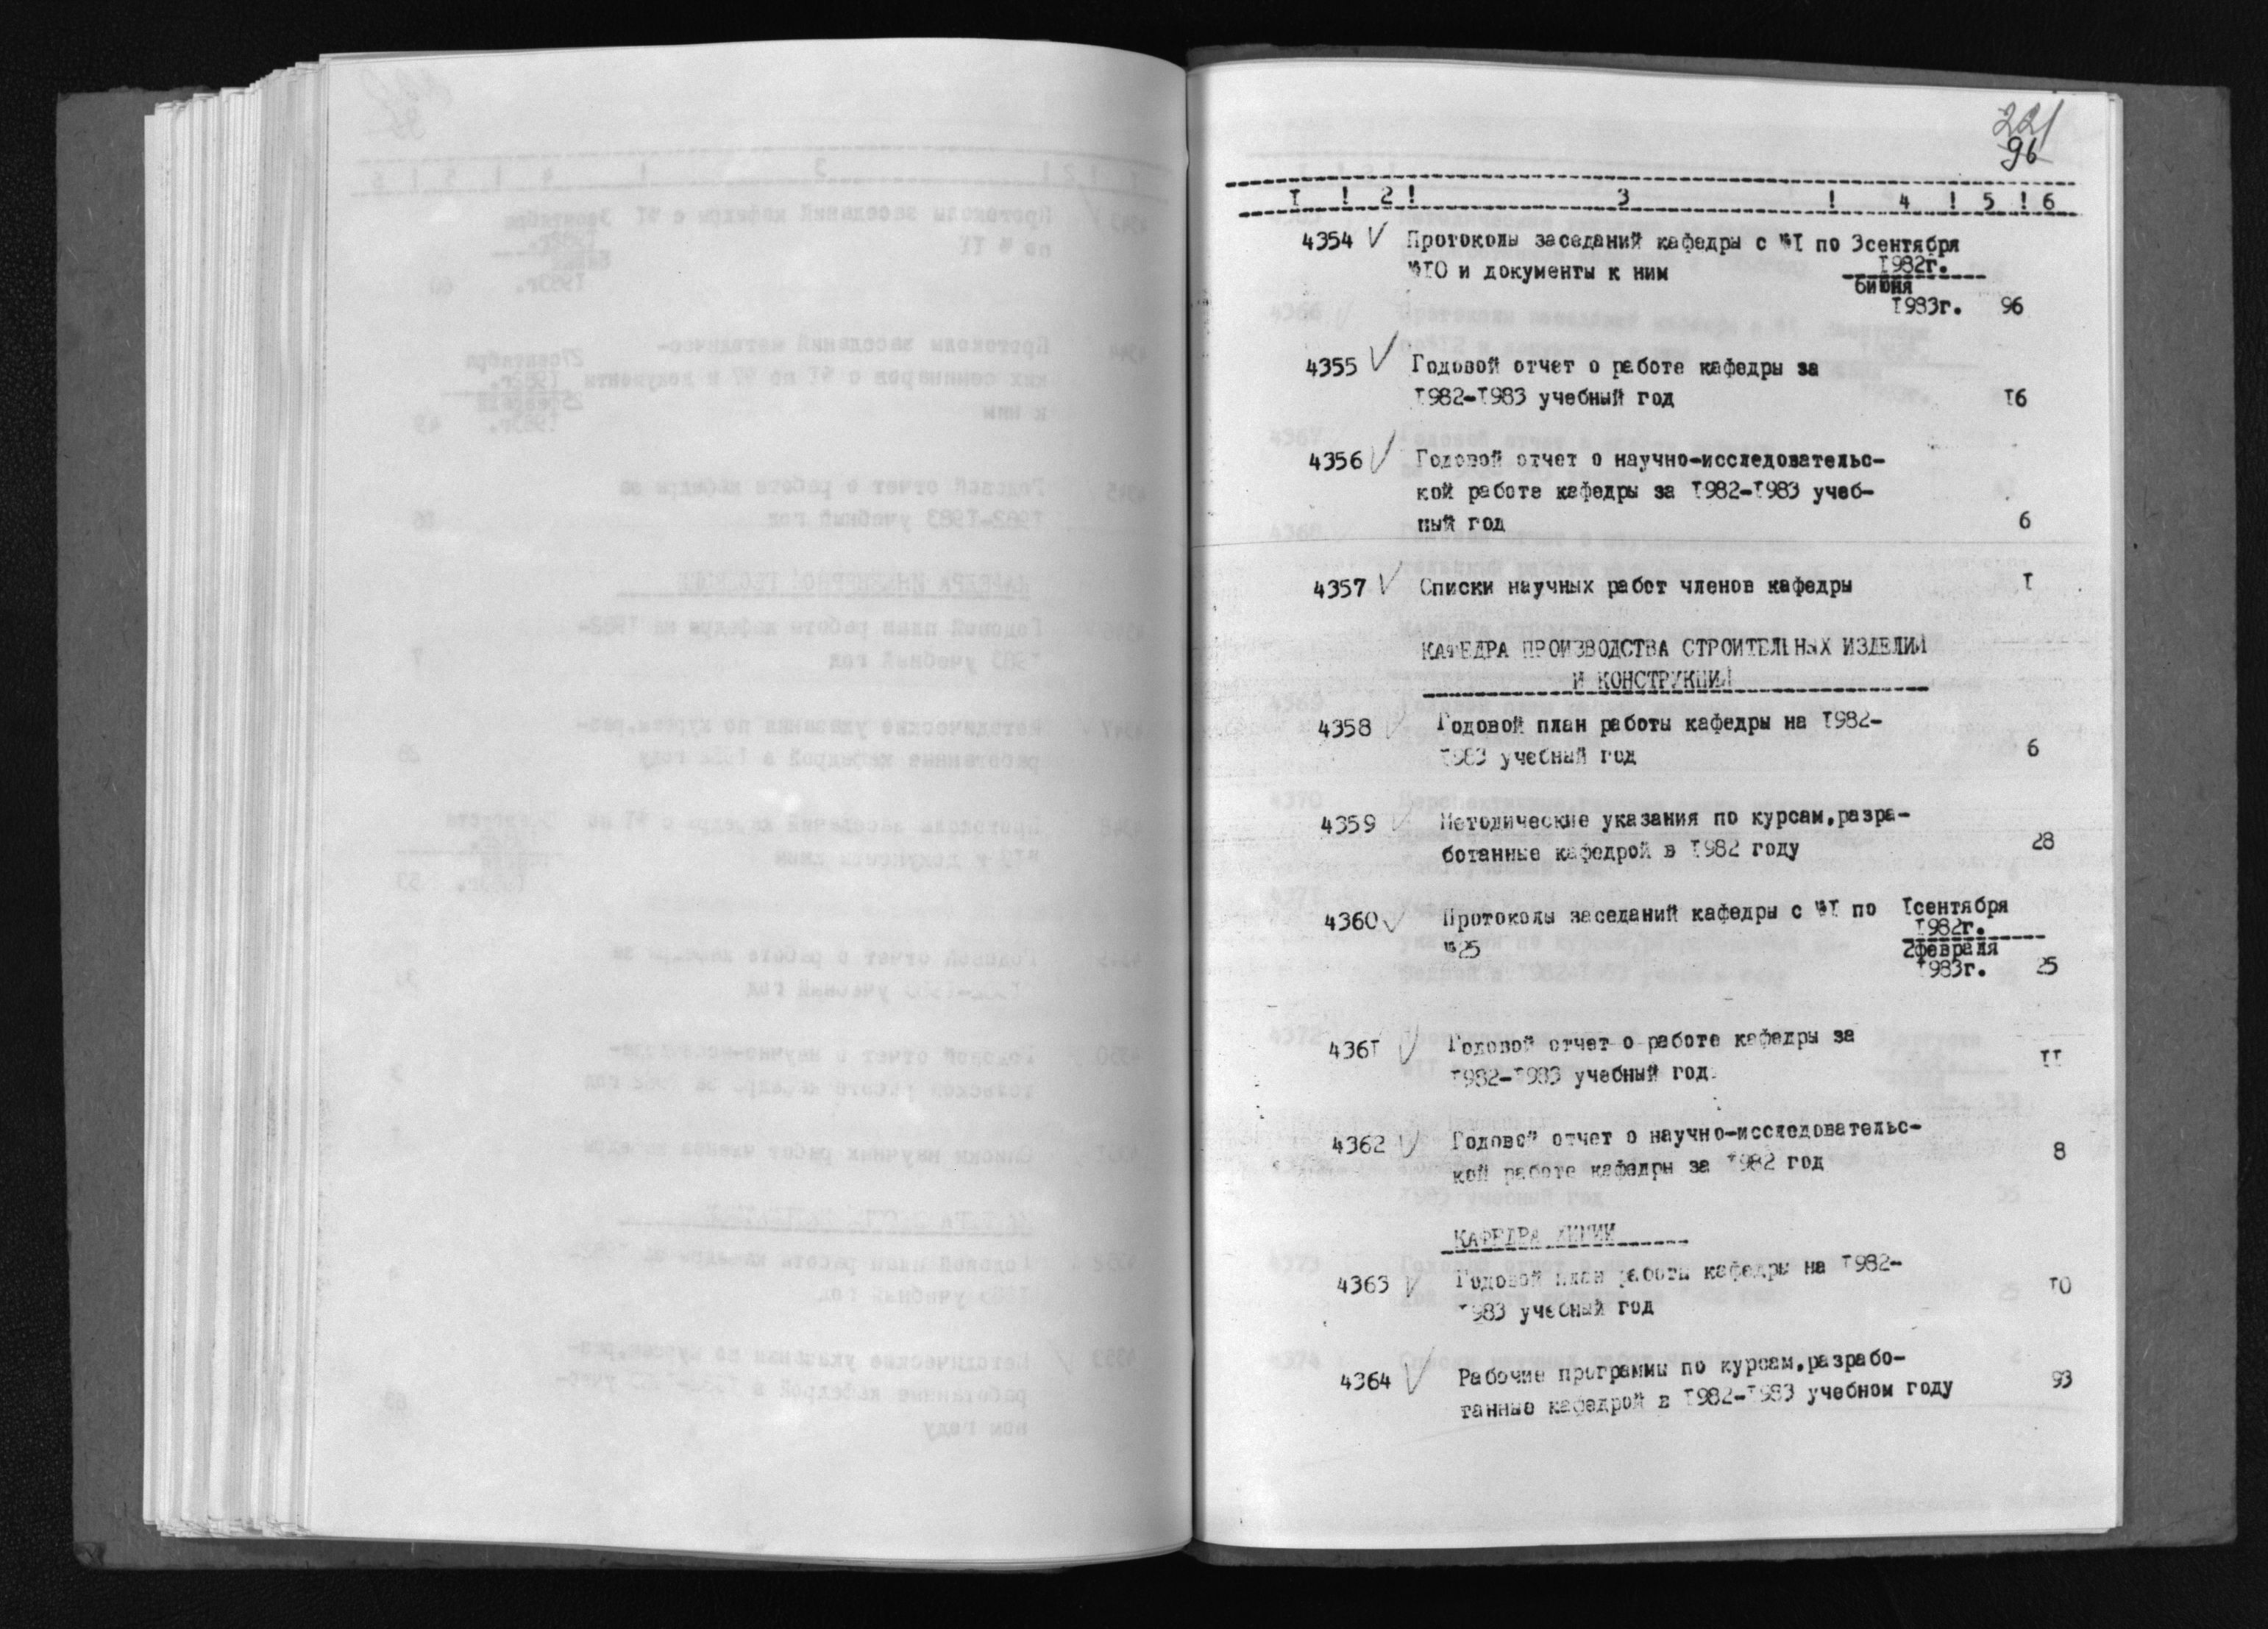 221
96
I ! 2 ! 3 ! 4 ! 5 ! 6
4354 √ Протоколы заседаний кафедры с №I по 3сентября
№I0 и документы к ним I982г.
6июня
I983г. 96
4355 √ Годовой отчет о работе кафедры за
I982-I983 учебный год I6
4356 √ Годовой отчет о научно-исследовательс-
кой работе кафедры за I982-I983 учеб-
ный год 6
4357 √ Списки научных работ членов кафедры I
КАФЕДРА ПРОИЗВОДСТВА СТРОИТЕЛЬНЫХ ИЗДЕЛИЙ
И КОНСТРУКЦИЙ
4358 √ Годовой план работы кафедры на I982-
I983 учебный год 6
4359 √ Методические указания по курсам,разра-
ботанные кафедрой в I982 году 28
4360 √ Протоколы заседаний кафедры с №I по Iсентября
№25 I982г.
2февраля
I983г. 25
436I √ Годовой отчет о работе кафедры за
I982-I983 учебный год. II
4362 √ Годовой отчет о научно-исследовательс-
кой работе кафедры за I982 год 8
КАФЕДРА ХИМИИ
4363 √ Годовой план работы кафедры на I982-
I983 учебный год I0
4364 √ Рабочие программы по курсам,разрабо-
танные кафедрой в I982-I983 учебном году 93